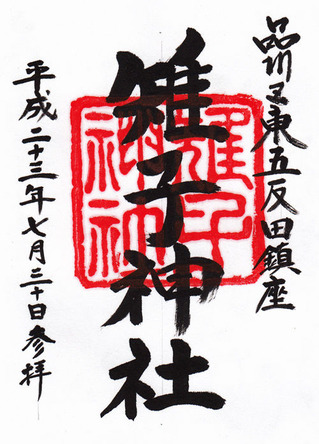 品川区東五反田鎮座
雉子神社
平成二十三年七月三十日参拝
雉子
神社